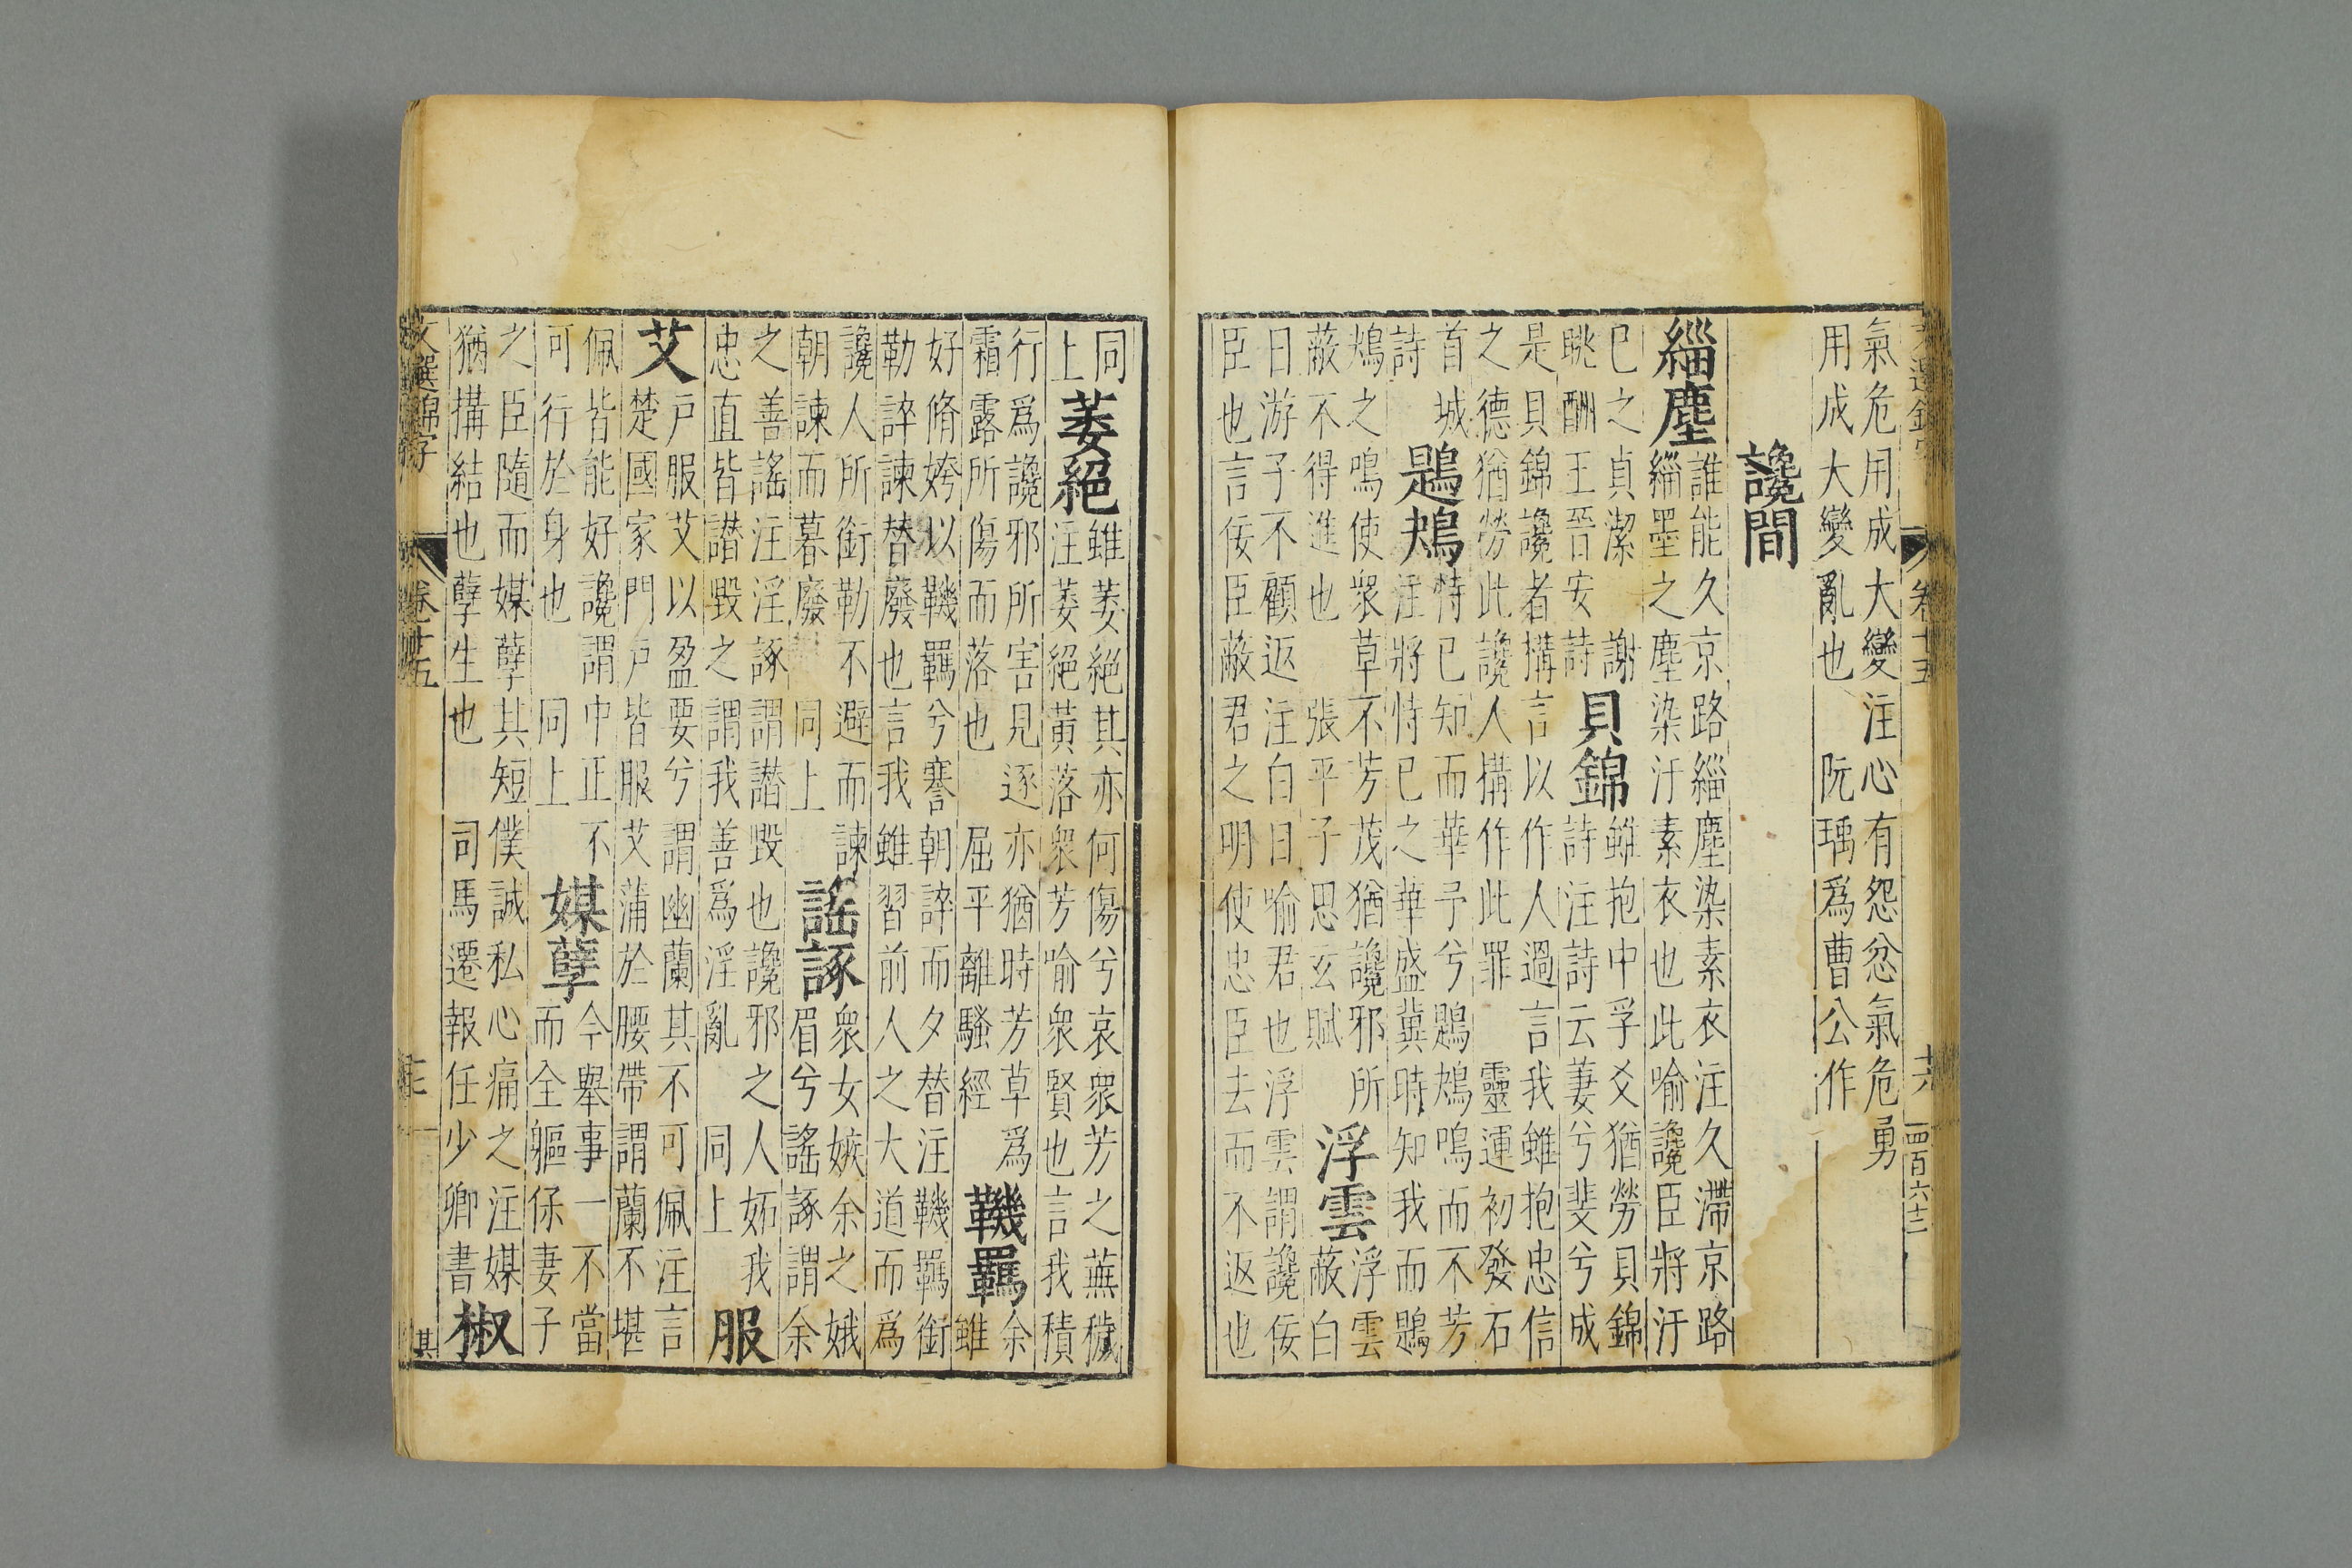 氣危用成大變注心有怨忿氣危勇
用成大變亂也 阮瑀爲曹公作
讒間
緇塵
誰能久京路緇塵染素衣注久滯京路
緇墨之塵染汙素衣也此喻讒臣將汙
已之貞潔 謝
眺酬王晉安詩
貝錦
雖抱中孚爻猶勞貝錦
詩注詩云萋兮斐兮成
是貝錦讒者構言以作人過言我雖抱忠信
之德猶勞此讒人構作此罪 靈運初發石
首城
詩
鶗鴂
恃已知而華予兮鶗鴂鳴而不芳
注將恃已之華盛冀時知我而鶗
鴂之鳴使衆草不芳茂猶讒邪所
蔽不得進也 張平子思玄賦
浮雲
浮雲
蔽白
日游子不顧返注白日喻君也浮雲謂讒佞
臣也言佞臣蔽君之明使忠臣去而不返也
卷十五
四百六十二
同
上
萎絕
雖萎絕其亦何傷兮哀衆芳之蕪穢
注萎絕黃落衆芳喻衆賢也言我積
行爲讒邪所害見逐亦猶時芳草爲
霜露所傷而落也 屈平離騷經
鞿羈
余
雖
好脩姱以鞿羈兮謇朝誶而夕替注鞿羈銜
勒誶諫替廢也言我雖習前人之大道而爲
讒人所銜勒不避而諫
朝諫而暮廢 同上
謠諑
衆女嫉余之娥
眉兮謠諑謂余
之善謠注淫諑謂譖毀也讒邪之人妬我
忠直皆譖毀之謂我善爲淫亂 同上
服
艾
戶服艾以盈要兮謂幽蘭其不可佩注言
楚國家門戶皆服艾蒲於腰帶謂蘭不堪
佩皆能好讒謂中正不
可行於身也 同上
媒孽
今舉事一不當
而全軀保妻子
之臣隨而媒孽其短僕誠私心痛之注媒
猶搆結也孽生也 司馬遷報任少卿書
椒
文選錦字
卷十五
其